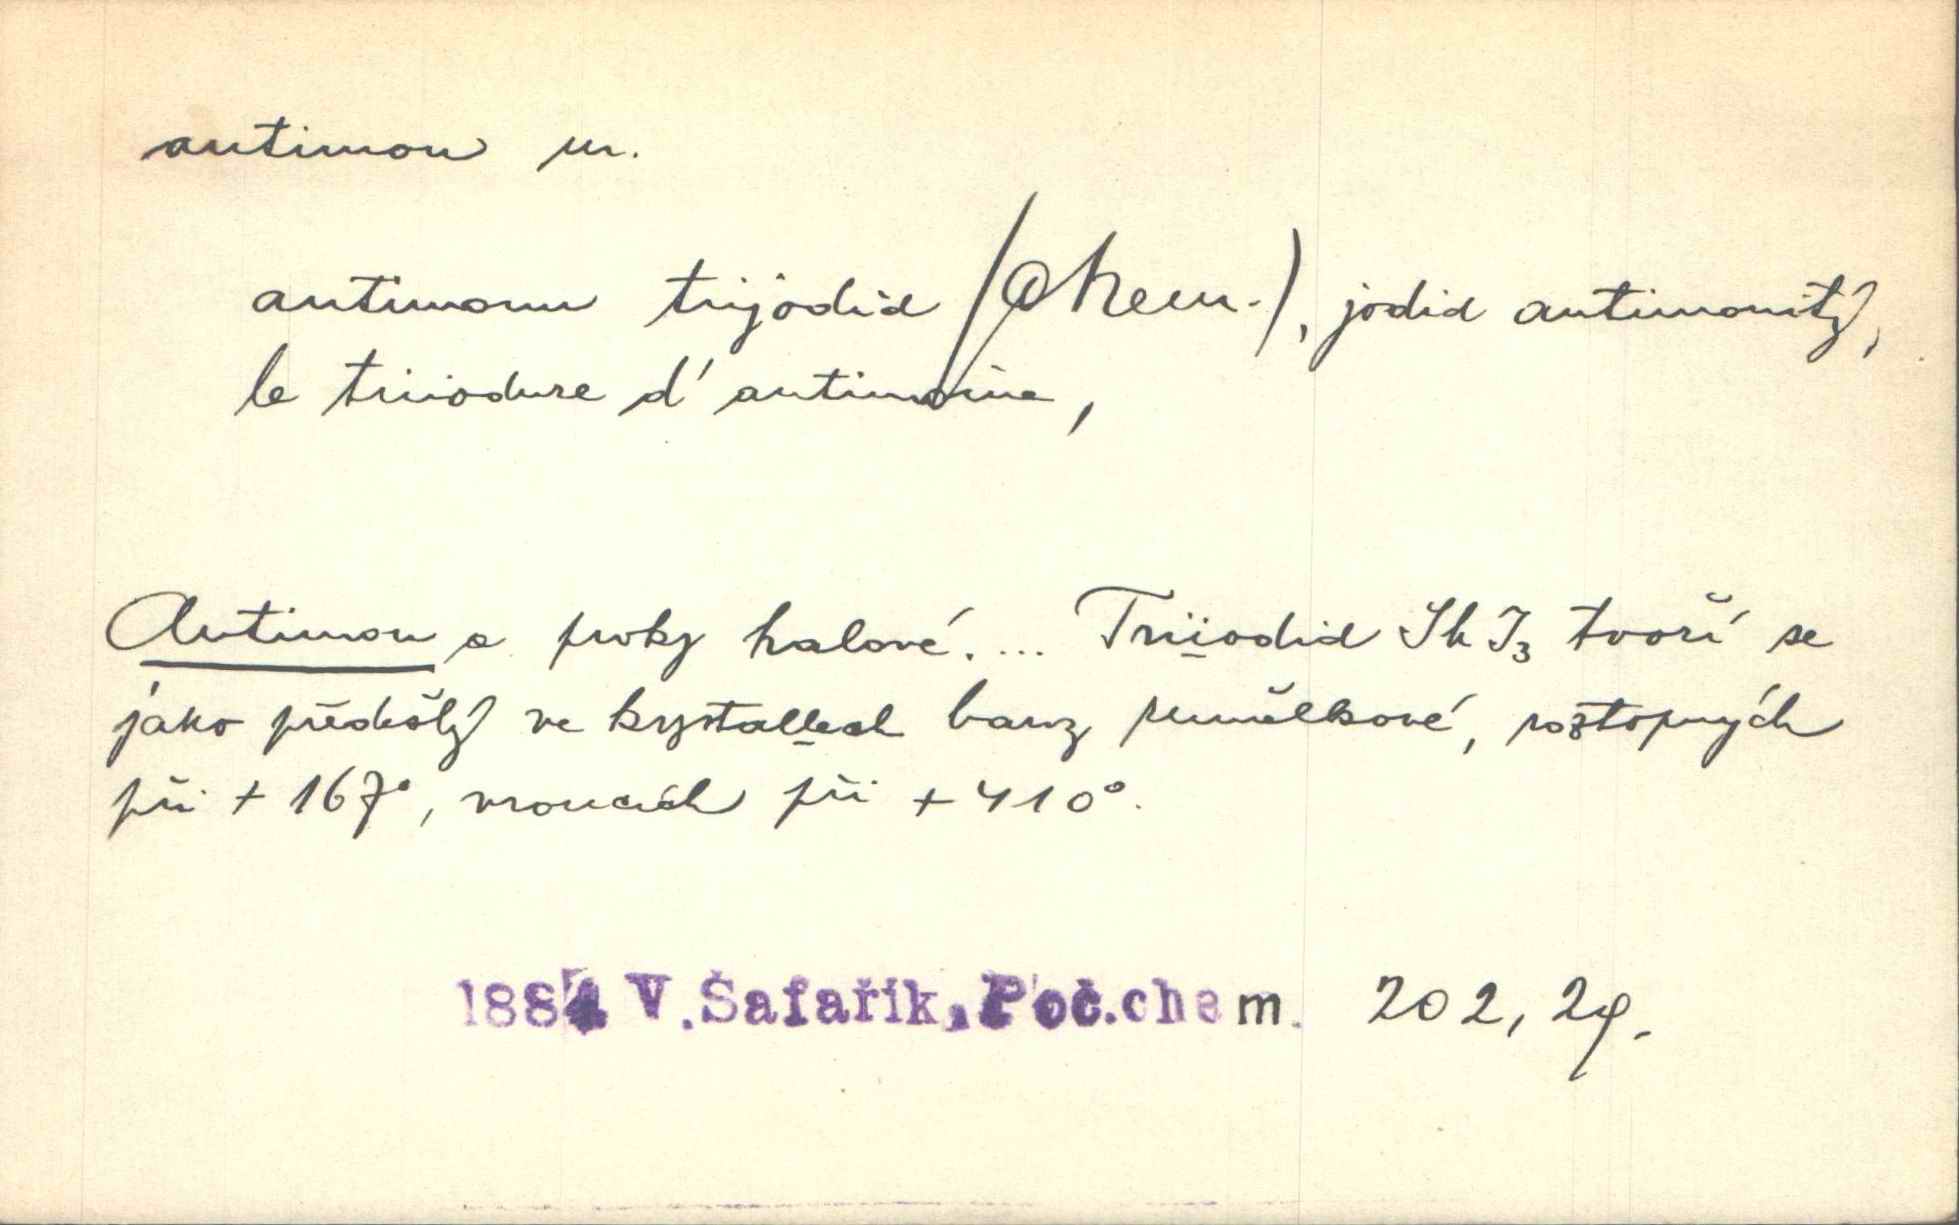 antimon m.
antimonu trijodid (chem.), jodid antimonitý,
le triiodure d'antimoine,
Antimon a prvky halové. ... Triiodid Sb I₃ tvoří se
jako předešlý ve krystallech barvy rumělkové, roztopných
při + 167°, vroucích při + 410°.
1884 V. Šafařík, Poč. chem. 202, 2